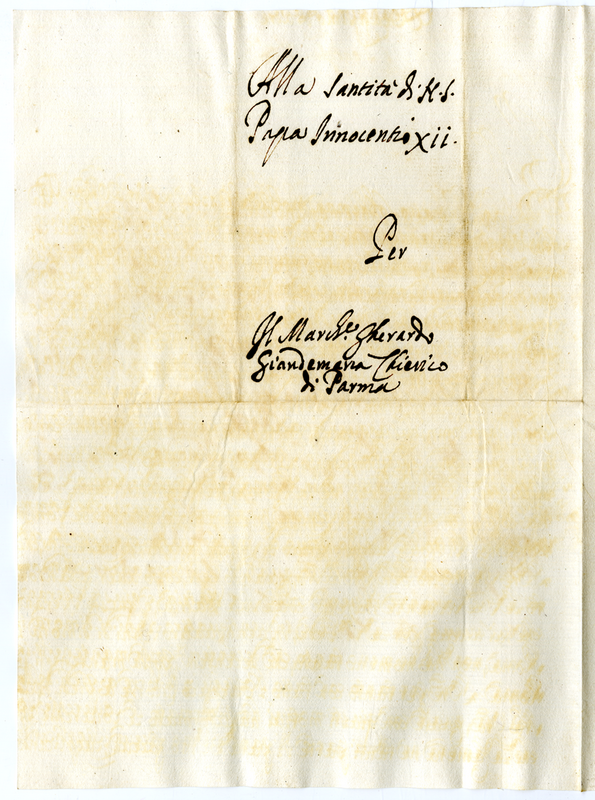 Alla Santità di N. S.
Papa Innocentio XII.
Per
Il March.e Gherardo
Giandemaria Chierico
di Parma